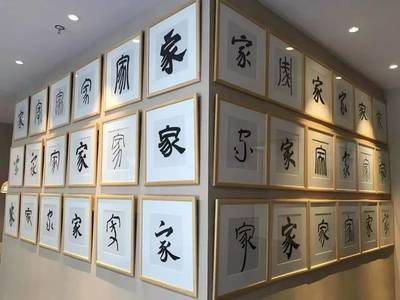 家 家 家 家 家 家 家 家 家 家 家 家
家 家 家 家 家 家 家 家 家 家 家 家
家 家 家 家 家 家 家 家 家 家 家 家